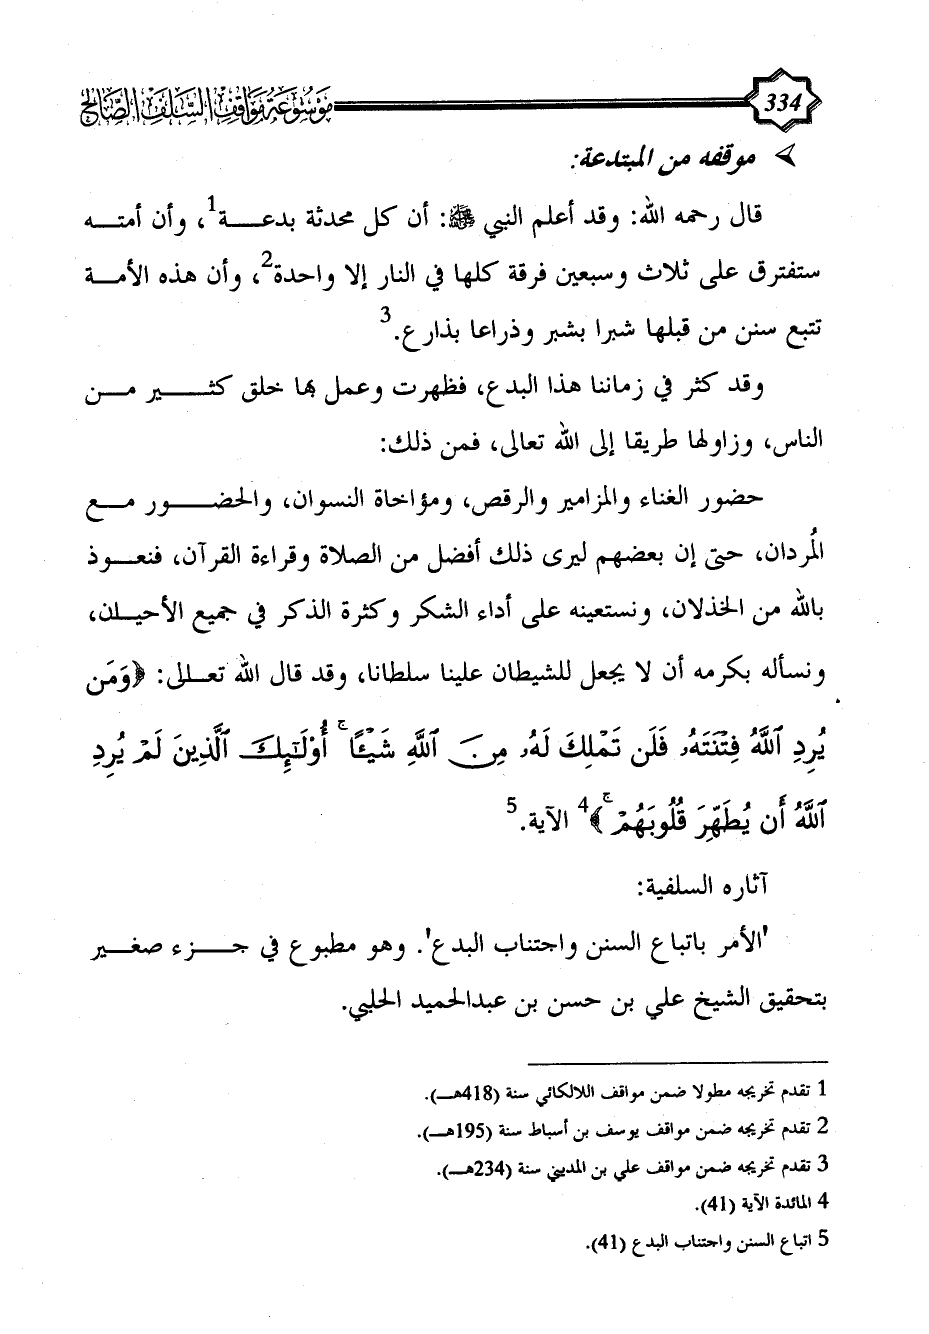 334 موسوعة مواقف السلف الصالح
➢ موقفه من المبتدعة:
قال رحمه الله: وقد أعلم النبي ﷺ: أن كل محدثة بدعـــة1، وأن أمتـــه
ستفترق على ثلاث وسبعين فرقة كلها في النار إلا واحدة2، وأن هذه الأمـــة
تتبع سنن من قبلها شبرا بشبر وذراعا بذارع.3
وقد كثر في زماننا هذا البدع، فظهرت وعمل بها خلق كثـــير مـــن
الناس، وزاولها طريقا إلى الله تعالى، فمن ذلك:
حضور الغناء والمزامير والرقص، ومؤاخاة النسوان، والحضـــور مـــع
المُردان، حتى إن بعضهم ليرى ذلك أفضل من الصلاة وقراءة القرآن، فنعـــوذ
بالله من الخذلان، ونستعينه على أداء الشكر وكثرة الذكر في جميع الأحيـــان،
ونسأله بكرمه أن لا يجعل للشيطان علينا سلطانا، وقد قال الله تعـــالى: ﴿وَمَن
يُرِدِ ٱللَّهُ فِتۡنَتَهُۥ فَلَن تَمۡلِكَ لَهُۥ مِنَ ٱللَّهِ شَيۡـًٔاۚ أُوْلَٰٓئِكَ ٱلَّذِينَ لَمۡ يُرِدِ
ٱللَّهُ أَن يُطَهِّرَ قُلُوبَهُمۡۚ﴾4 الآية.5
آثاره السلفية:
'الأمر باتباع السنن واجتناب البدع'. وهو مطبوع في جـــزء صغـــير
بتحقيق الشيخ علي بن حسن بن عبدالحميد الحلبي.
1 تقدم تخريجه مطولا ضمن مواقف اللالكائي سنة (418هـ).
2 تقدم تخريجه ضمن مواقف يوسف بن أسباط سنة (195هـ).
3 تقدم تخريجه ضمن مواقف علي بن المديني سنة (234هـ).
4 المائدة الآية (41).
5 اتباع السنن واجتناب البدع (41).